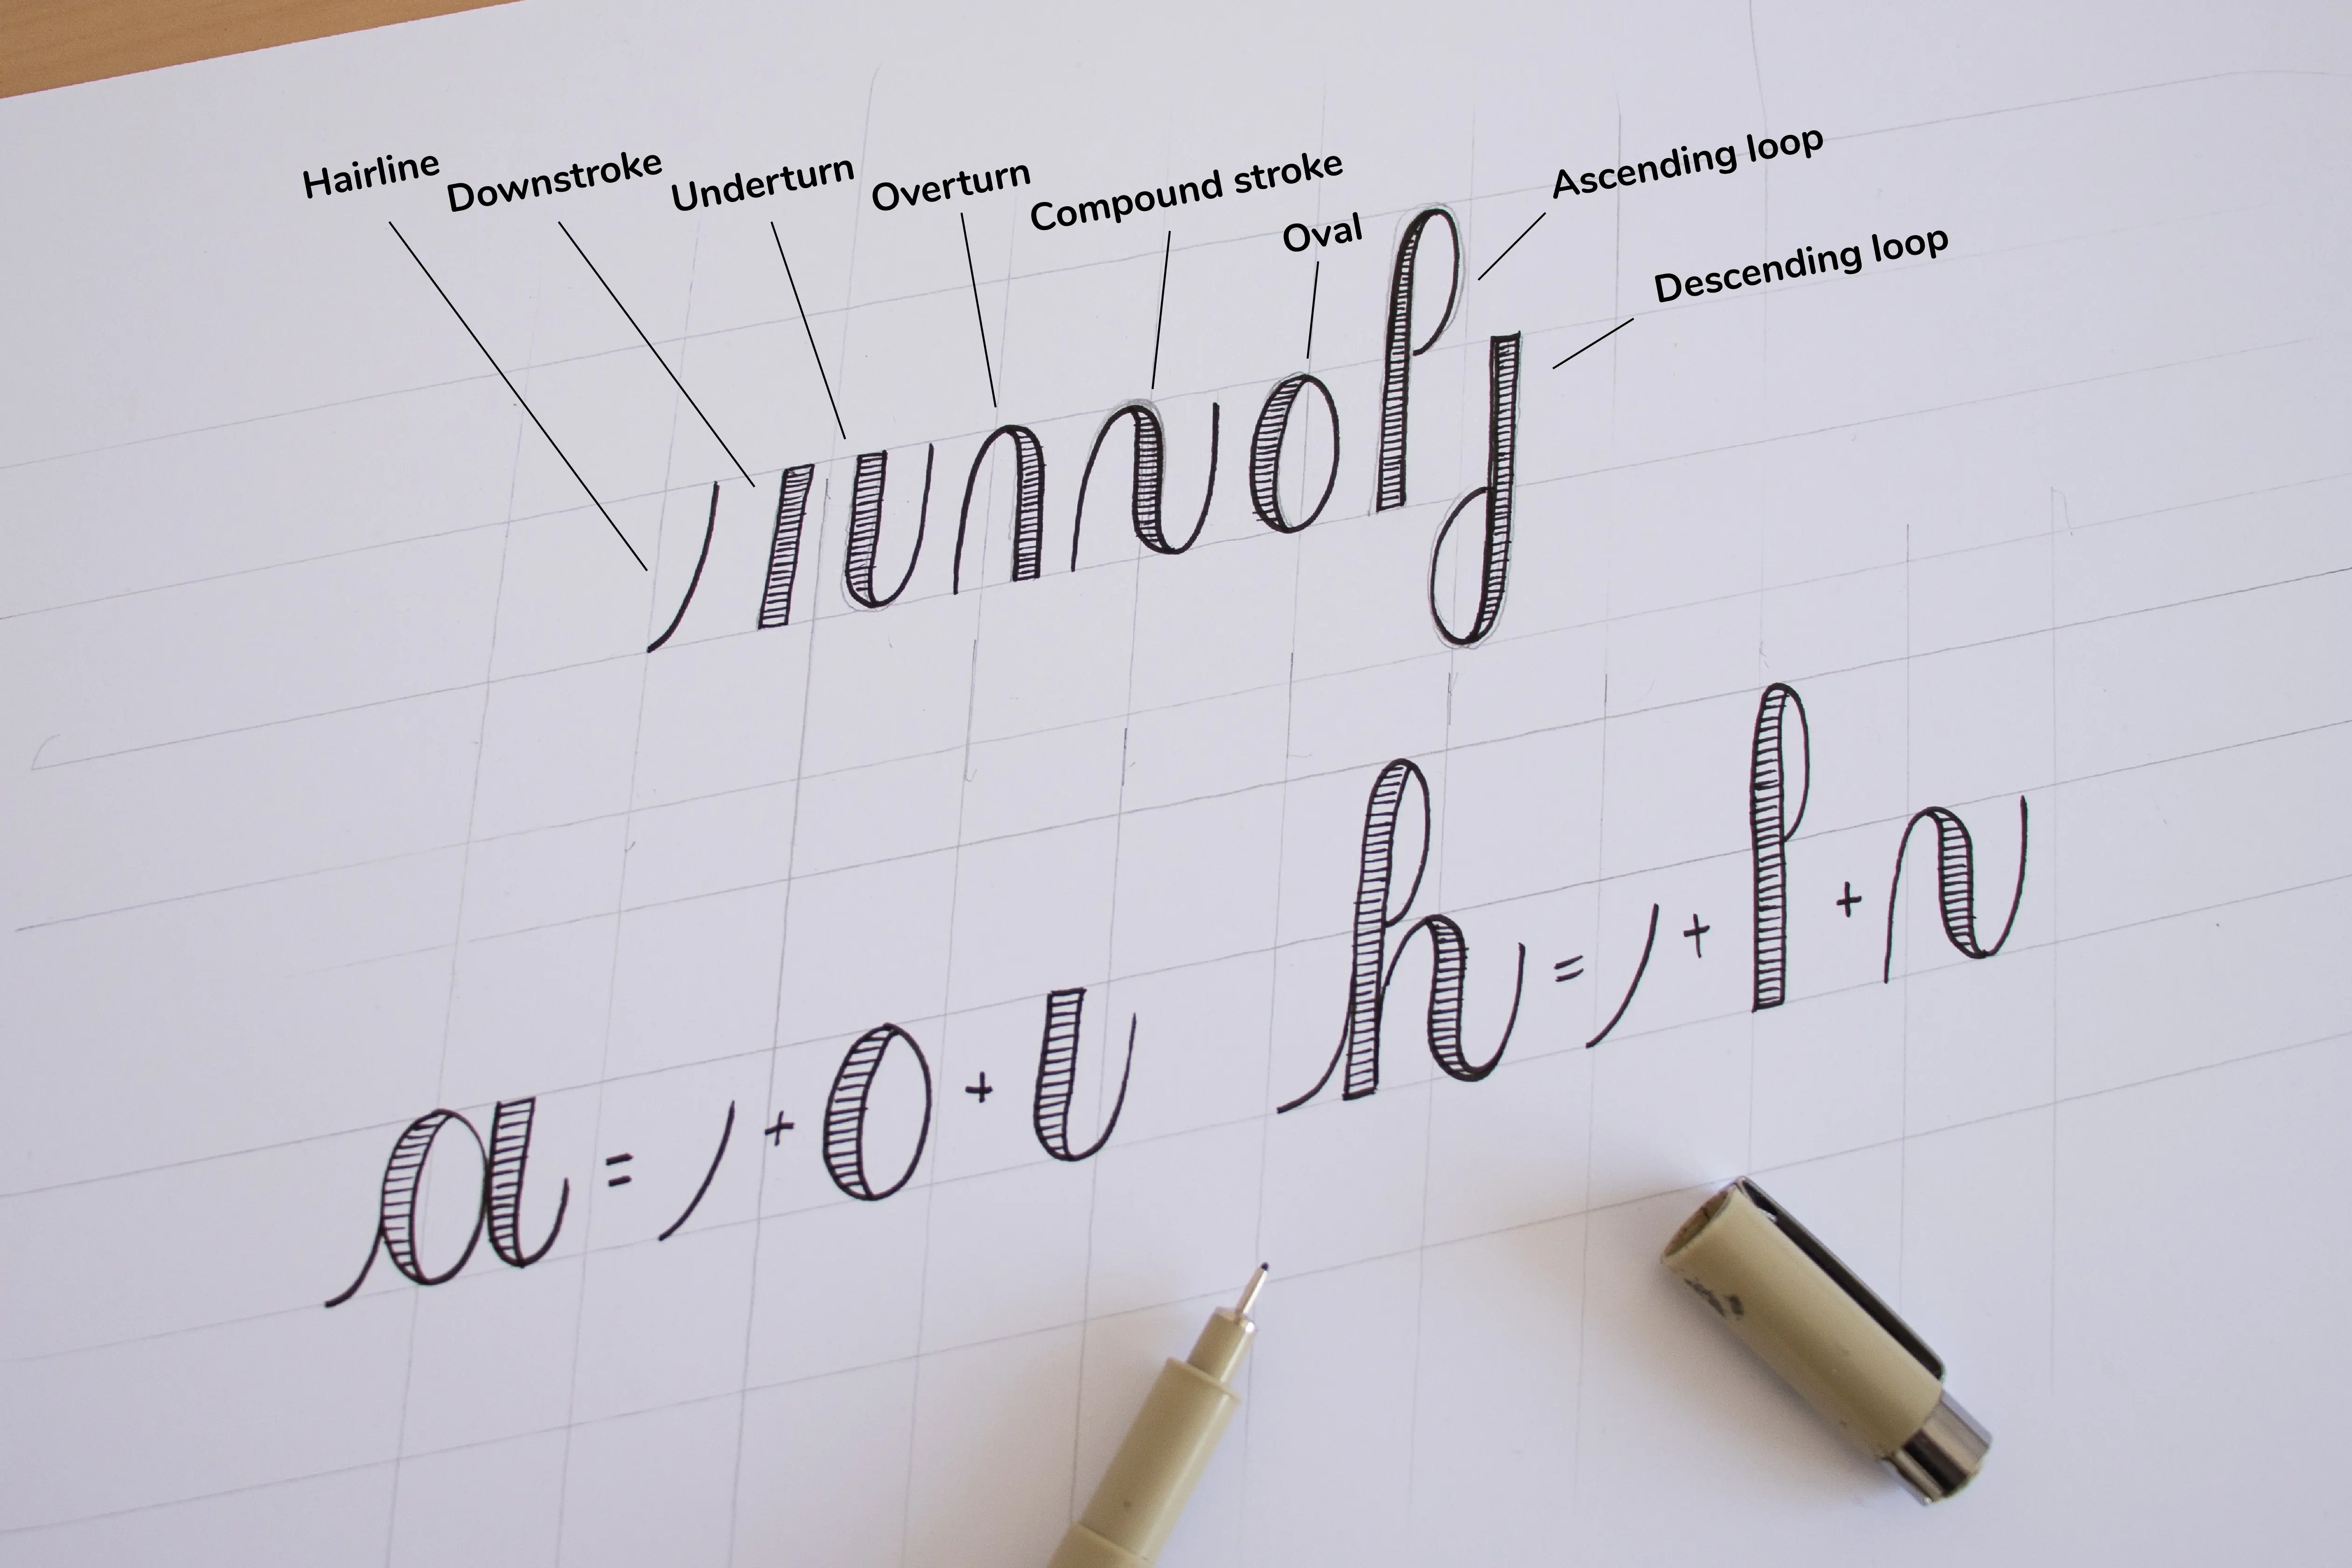 Hairline
Downstroke
Underturn
Overturn
Compound stroke
Oval
Ascending loop
Descending loop
a = / + o + ι
h = / + l + n